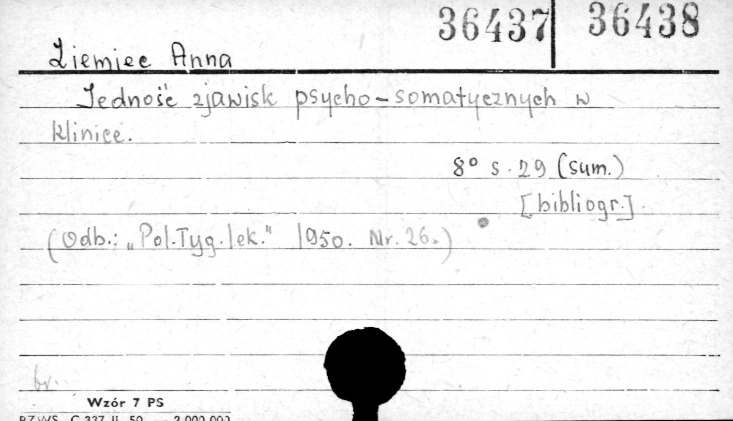 36437 36438
Ziemiec Anna
Jedność zjawisk psycho-somatycznych w
klinice.
8° s. 29 (sum.)
[bibliogr.]
(Odb.: „Pol.Tyg.lek." 1950. Nr. 26.)
br.
Wzór 7 PS
PZWS C 337 II. 50 2 000 000